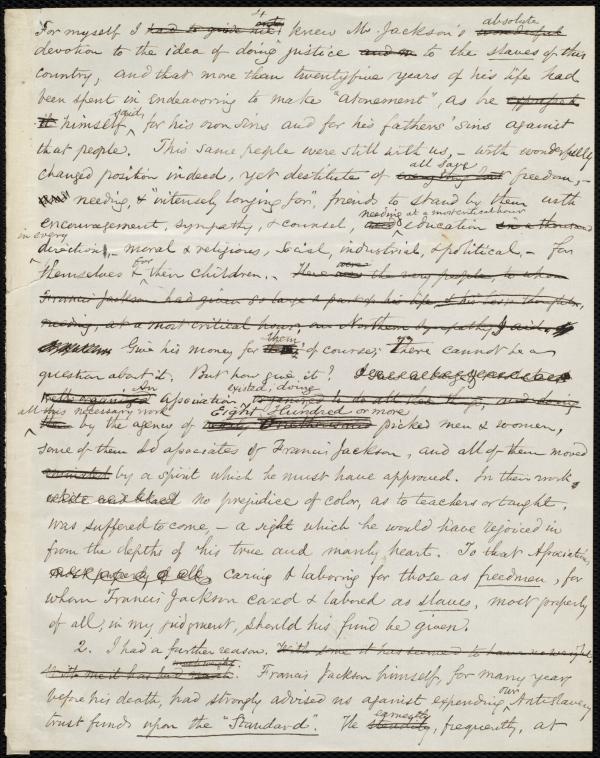 For myself I had to guide me knew Mr. Jackson's absolute
devotion to the idea of doing justice to the slaves of this
country, and that more than twentyfive years of his life had
been spent in endeavoring to make "atonement", as he
himself said, for his own sins and for his fathers' sins against
that people. This same people were still with us, – with wonderfully
changed position indeed, yet destitute of all save freedom, –
needing, & "intensely longing for", friends to stand by them with
encouragement, sympathy, & counsel, needing at a most critical hour education
in every direction, – moral & religious, social, industrial, & political, – for
themselves & for their children. – There were the very people to whom
Francis Jackson had given so large a part of his life
needing, at a most critical hour, our Northern sympathy & aid,
Give his money for them, of course; there cannot be a
question about it. But how give it?
An Association existed, doing
all this necessary work by the agency of Eight Hundred or more picked men & women,
some of them old associates of Francis Jackson, and all of them moved
by a spirit which he must have approved. In their work,
no prejudice of color, as to teachers or taught,
was suffered to come, – a sight which he would have rejoiced in
from the depths of his true and manly heart. To that Association,
most properly of all, caring & laboring for those as freedmen, for
whom Francis Jackson cared & labored as slaves, most properly
of all, in my judgment, should his fund be given.
2. I had a further reason.
Francis Jackson himself, for many years
before his death, had strongly advised us against expending our Anti-Slavery
trust funds upon the "Standard". He earnestly, frequently, at